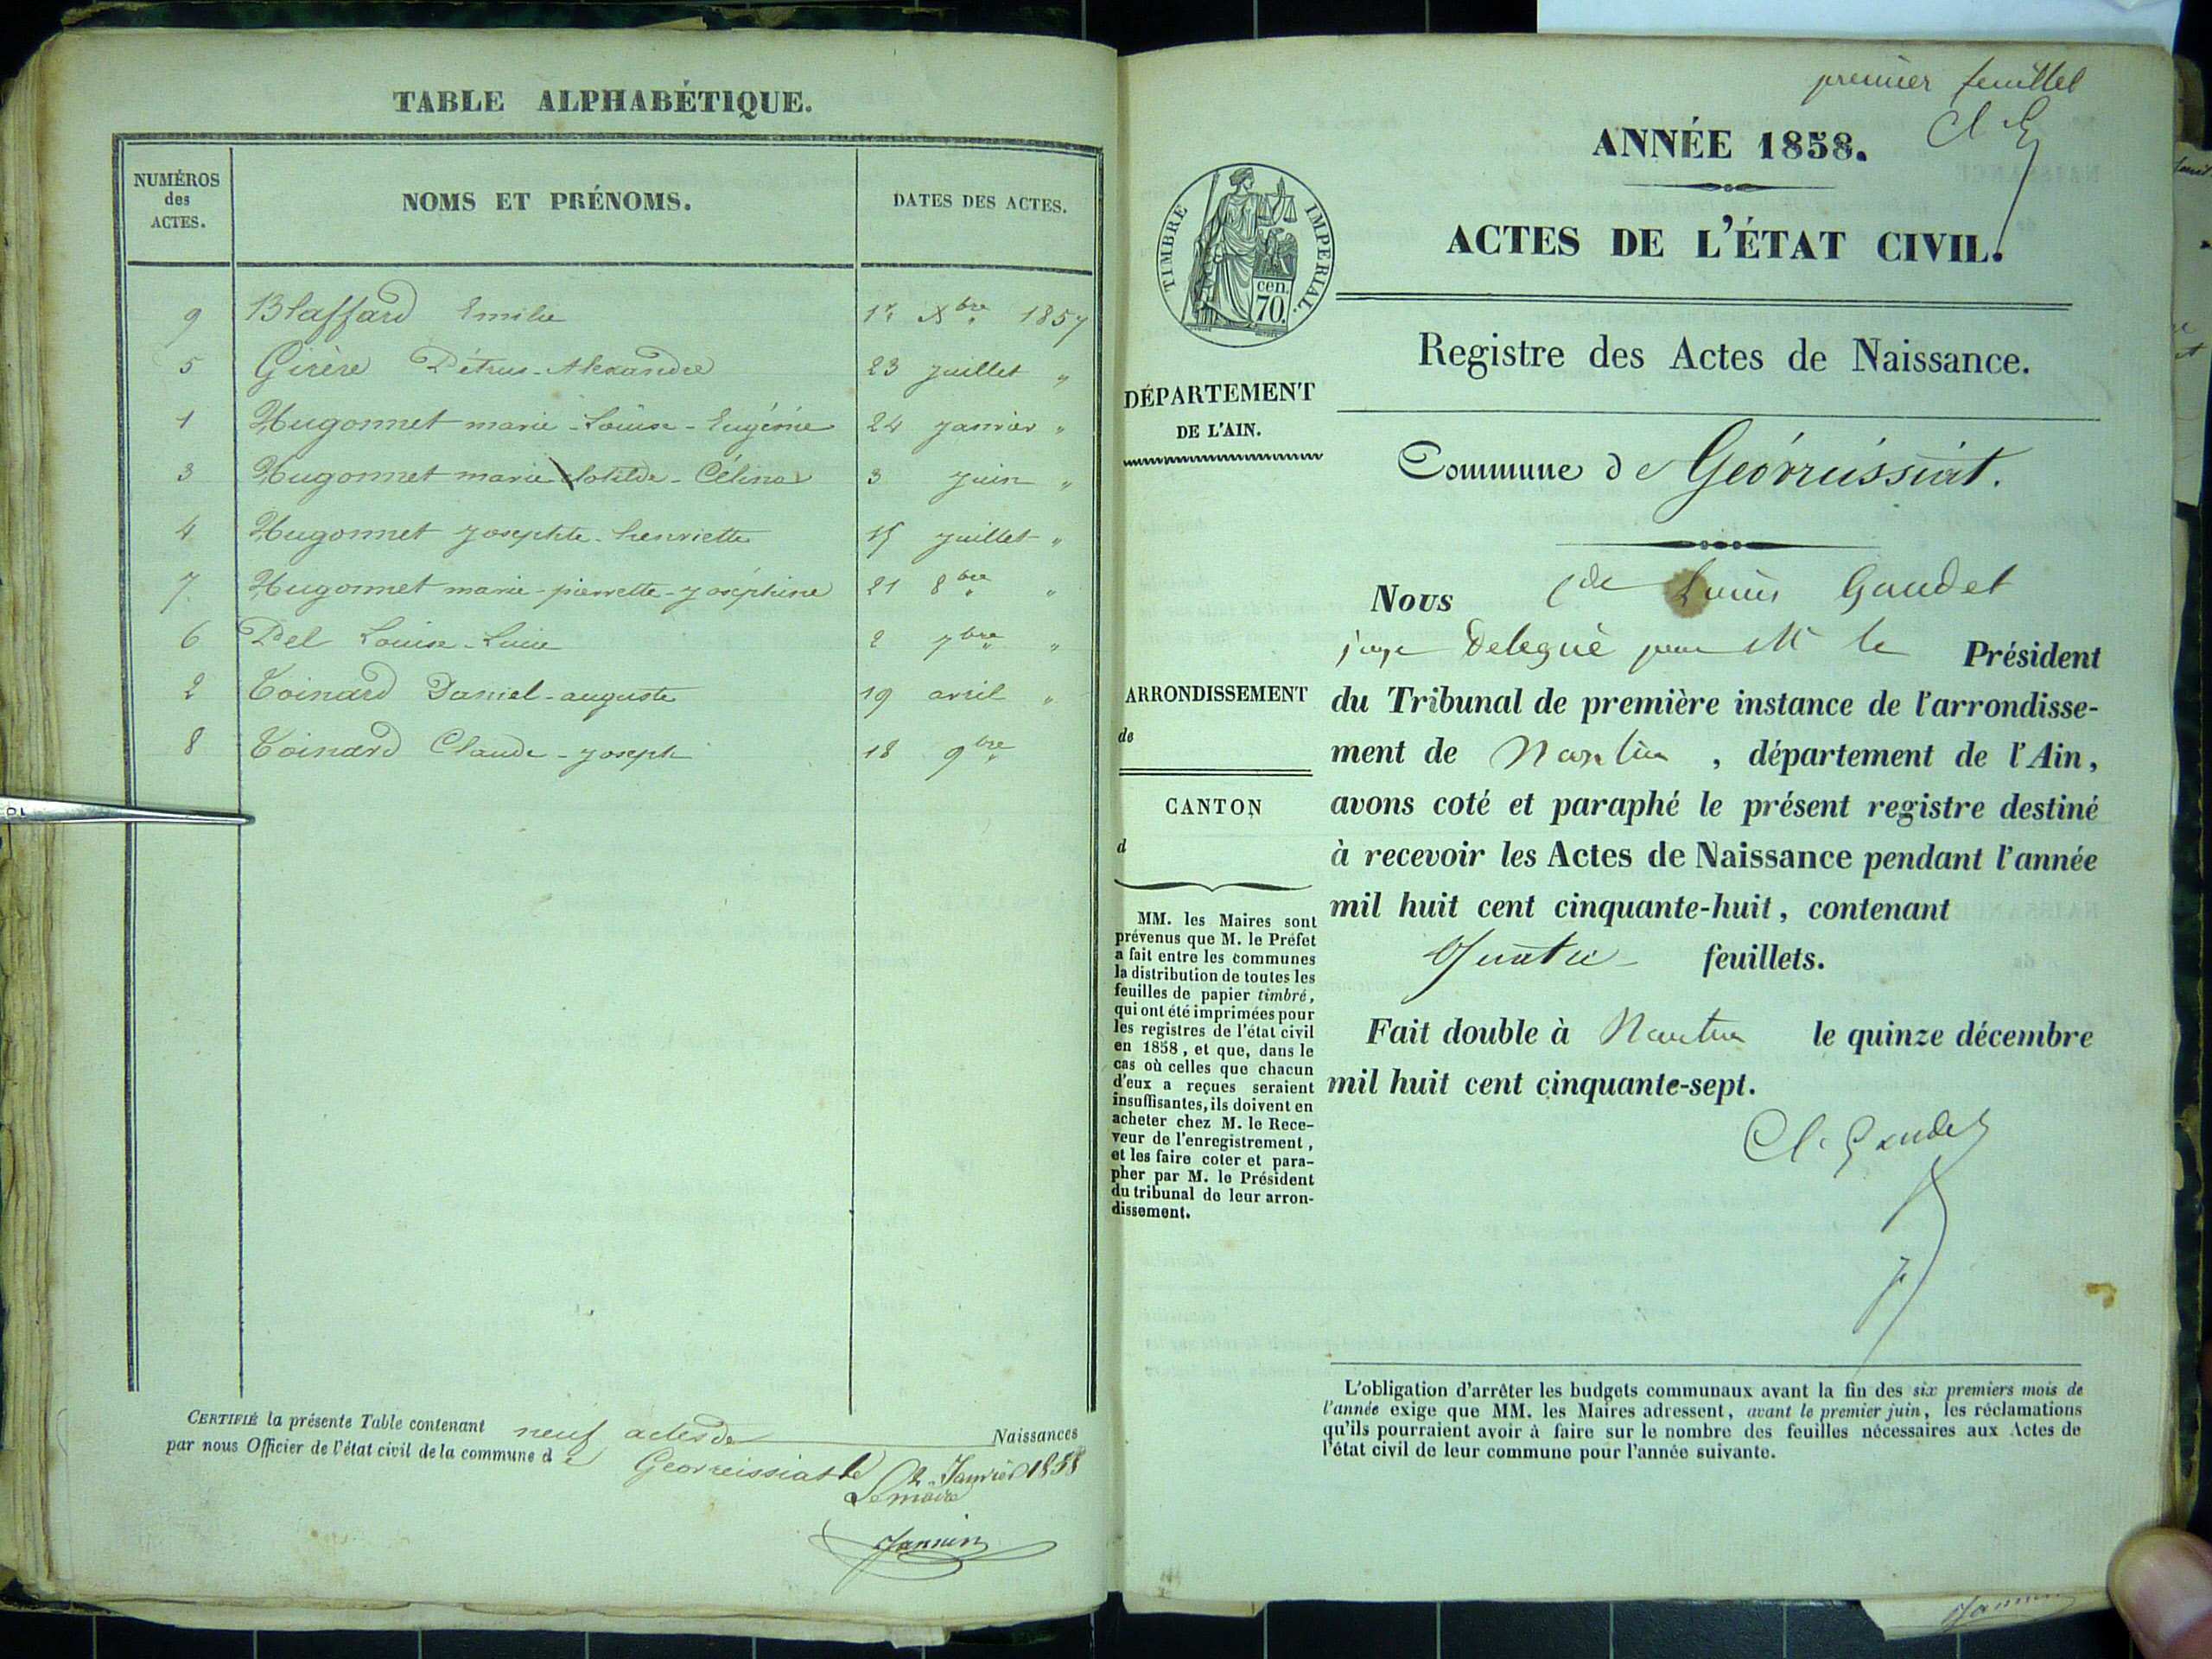 TABLE ALPHABÉTIQUE.
NUMÉROS
des
ACTES.
NOMS ET PRÉNOMS.
DATES DES ACTES.
9 Blaffard Emilie 1er Xbre 1857
5 Girère Pétrus-Alexandre 23 Juillet "
1 Hugonnet marie-Louise-Eugénie 24 Janvier "
3 Hugonnet marie Clotilde-Célina 3 Juin "
4 Hugonnet Josephte-henriette 15 Juillet "
7 Hugonnet marie-pierrette-Joséphine 21 8bre "
6 Pel Louise-Lucie 2 7bre "
2 Toinard Daniel-auguste 19 avril "
8 Toinard Claude-Joseph 18 9bre
CERTIFIÉ la présente Table contenant neuf actes de Naissances
par nous Officier de l'état civil de la commune de Georreissiat le 2 Janvier 1858
Le maire
Jannin
premier feuillet
Cl G
ANNÉE 1858.
ACTES DE L'ÉTAT CIVIL.
TIMBRE IMPÉRIAL.
cen.
70.
Registre des Actes de Naissance.
DÉPARTEMENT
DE L'AIN.
Commune de Géorruissiat.
ARRONDISSEMENT
de
CANTON
d
MM. les Maires sont
prévenus que M. le Préfet
a fait entre les communes
la distribution de toutes les
feuilles de papier timbré,
qui ont été imprimées pour
les registres de l'état civil
en 1858, et que, dans le
cas où celles que chacun
d'eux a reçues seraient
insuffisantes, ils doivent en
acheter chez M. le Rece-
veur de l'enregistrement,
et les faire coter et para-
pher par M. le Président
du tribunal de leur arron-
dissement.
Nous Cde Louis Gaudet
juge délégué par M le Président
du Tribunal de première instance de l'arrondisse-
ment de Nantua, département de l'Ain,
avons coté et paraphé le présent registre destiné
à recevoir les Actes de Naissance pendant l'année
mil huit cent cinquante-huit, contenant
Quatre feuillets.
Fait double à Nantua le quinze décembre
mil huit cent cinquante-sept.
Cl. Gaudet
L'obligation d'arrêter les budgets communaux avant la fin des six premiers mois de
l'année exige que MM. les Maires adressent, avant le premier juin, les réclamations
qu'ils pourraient avoir à faire sur le nombre des feuilles nécessaires aux Actes de
l'état civil de leur commune pour l'année suivante.
Jannin